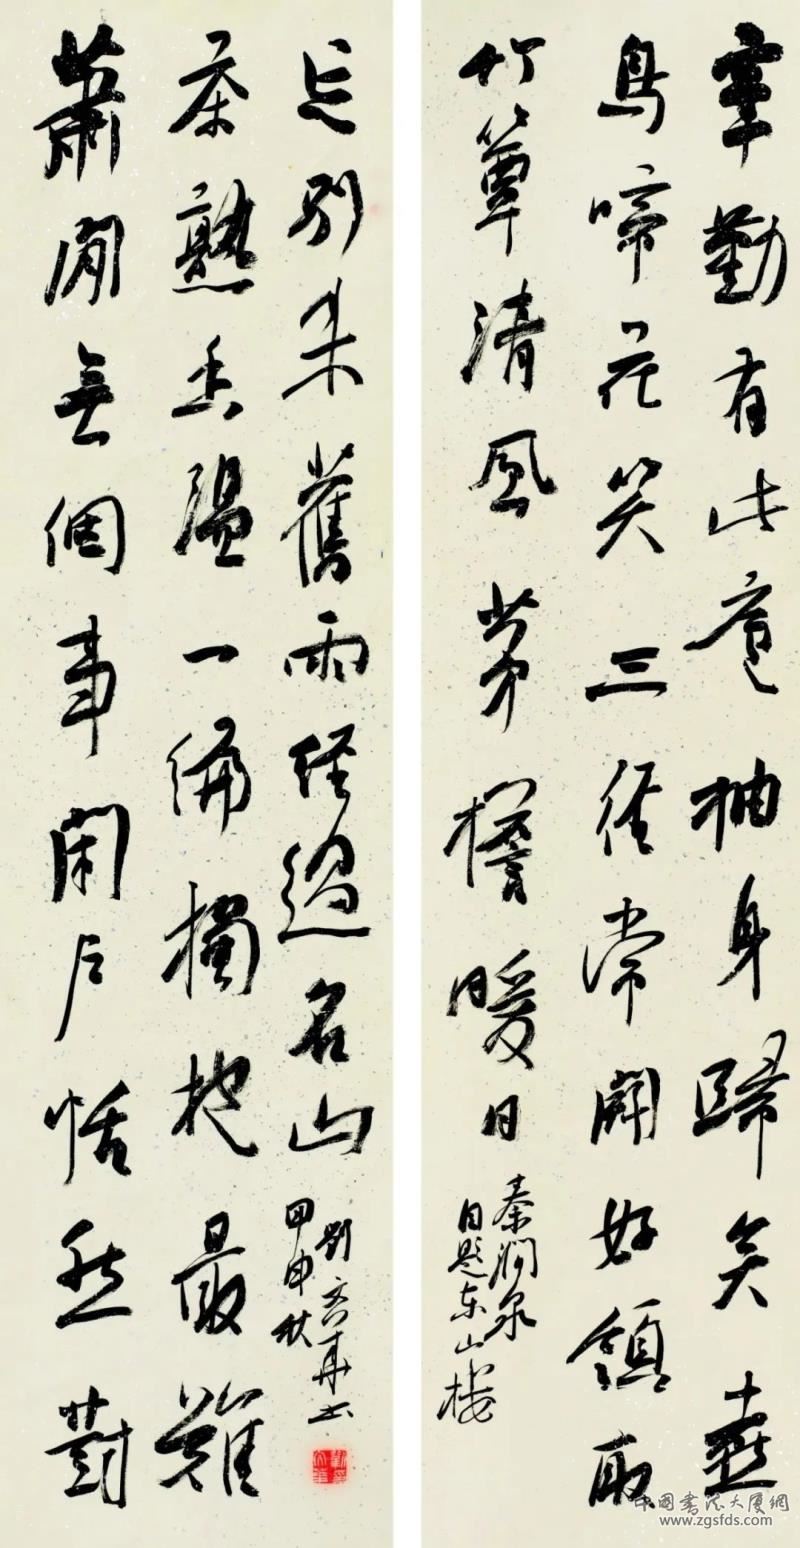 辛勤有此廬抽身歸矣喜
鳥啼花笑三徑常開好領取
竹簟清風茅檐暖日
秦澗泉
自題東山樓
蕭閒無個事閉户恬然對
茶熟香温一編獨抱最難
忘別來舊雨經過名山
劉文華書
甲申秋
中國書法大厦網
www.zgsfds.com